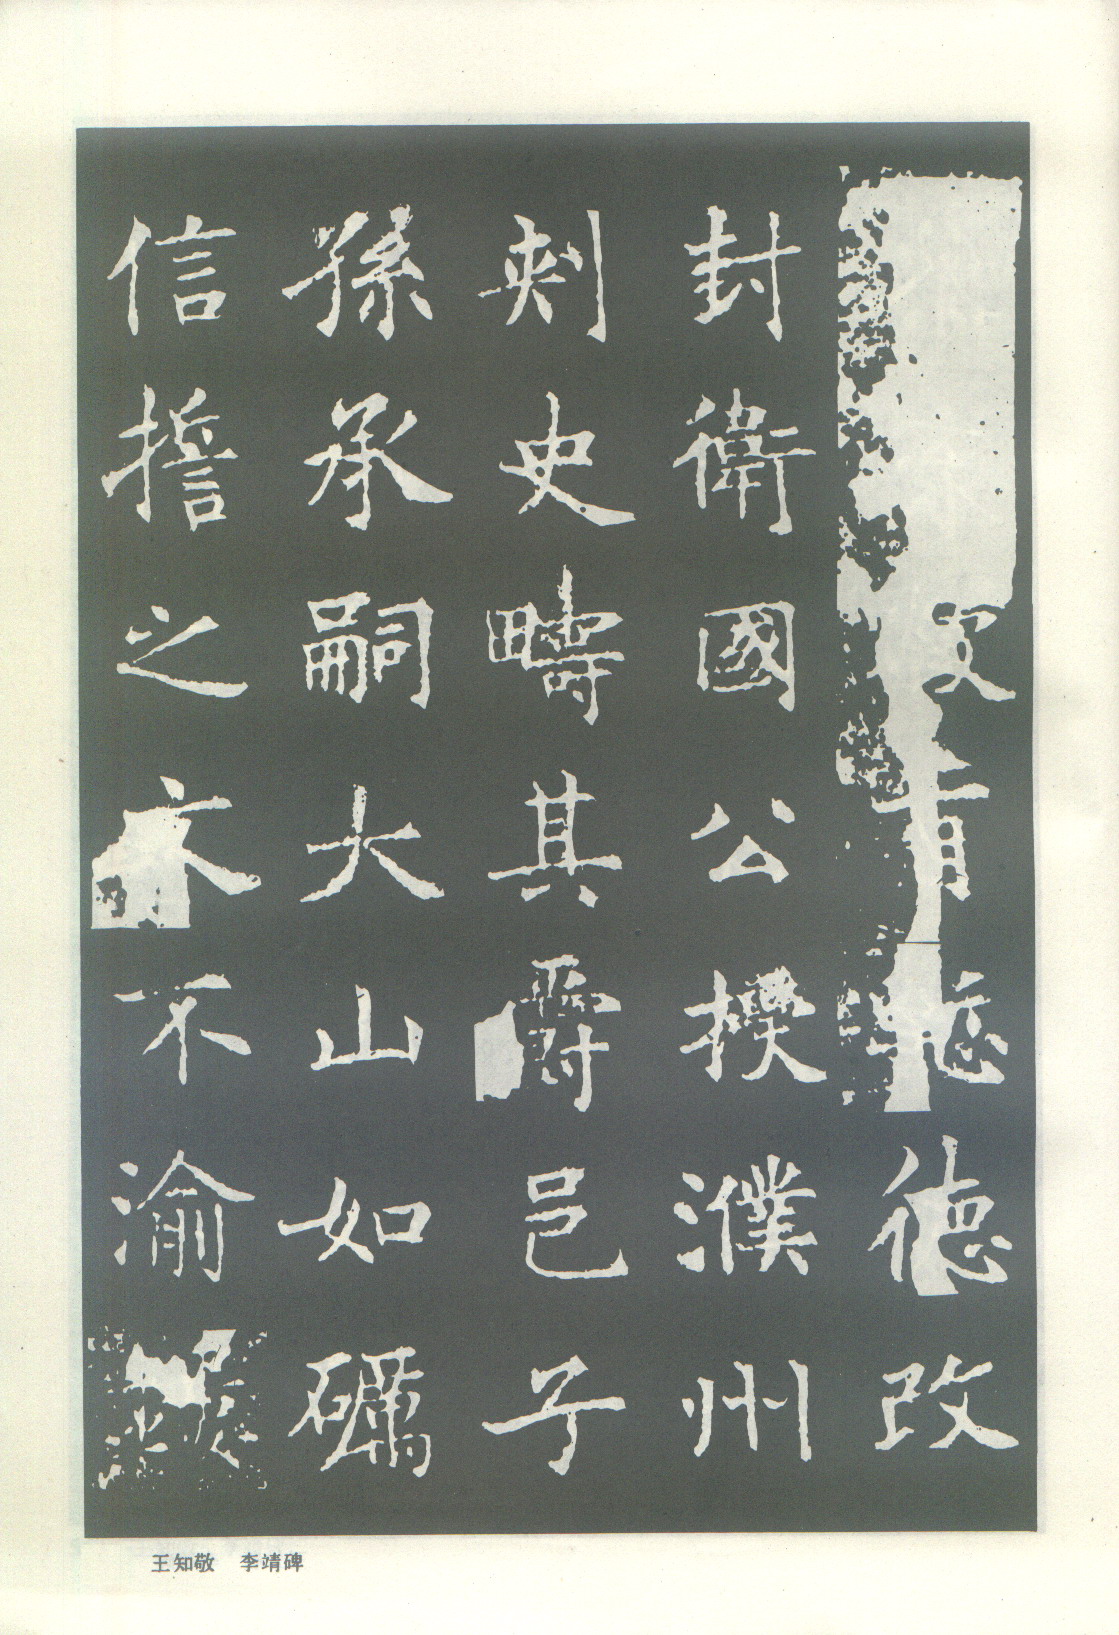 德改
封衛國公揆濮州
刾史疇其爵邑子
孫承嗣大山如礪
信擔之不渝
王知敬 李靖碑